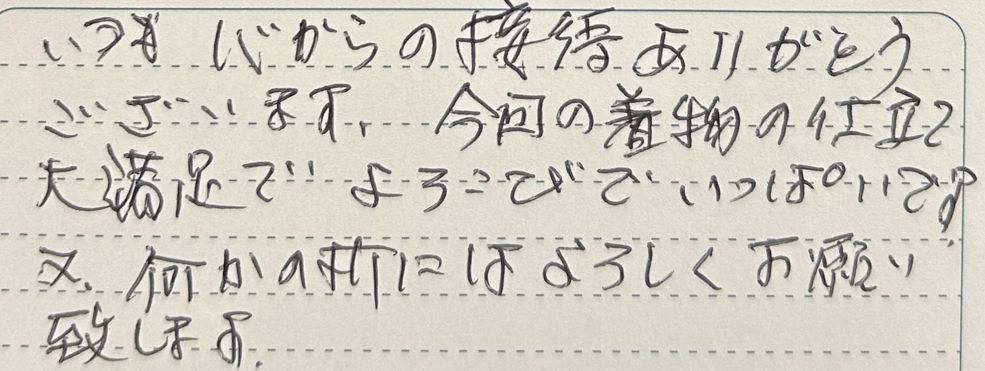 いつも心からの接待ありがとう
ございます。今回の着物の仕立て
大満足でよろこびでいっぱいです
又、何かの折にはよろしくお願い
致します。